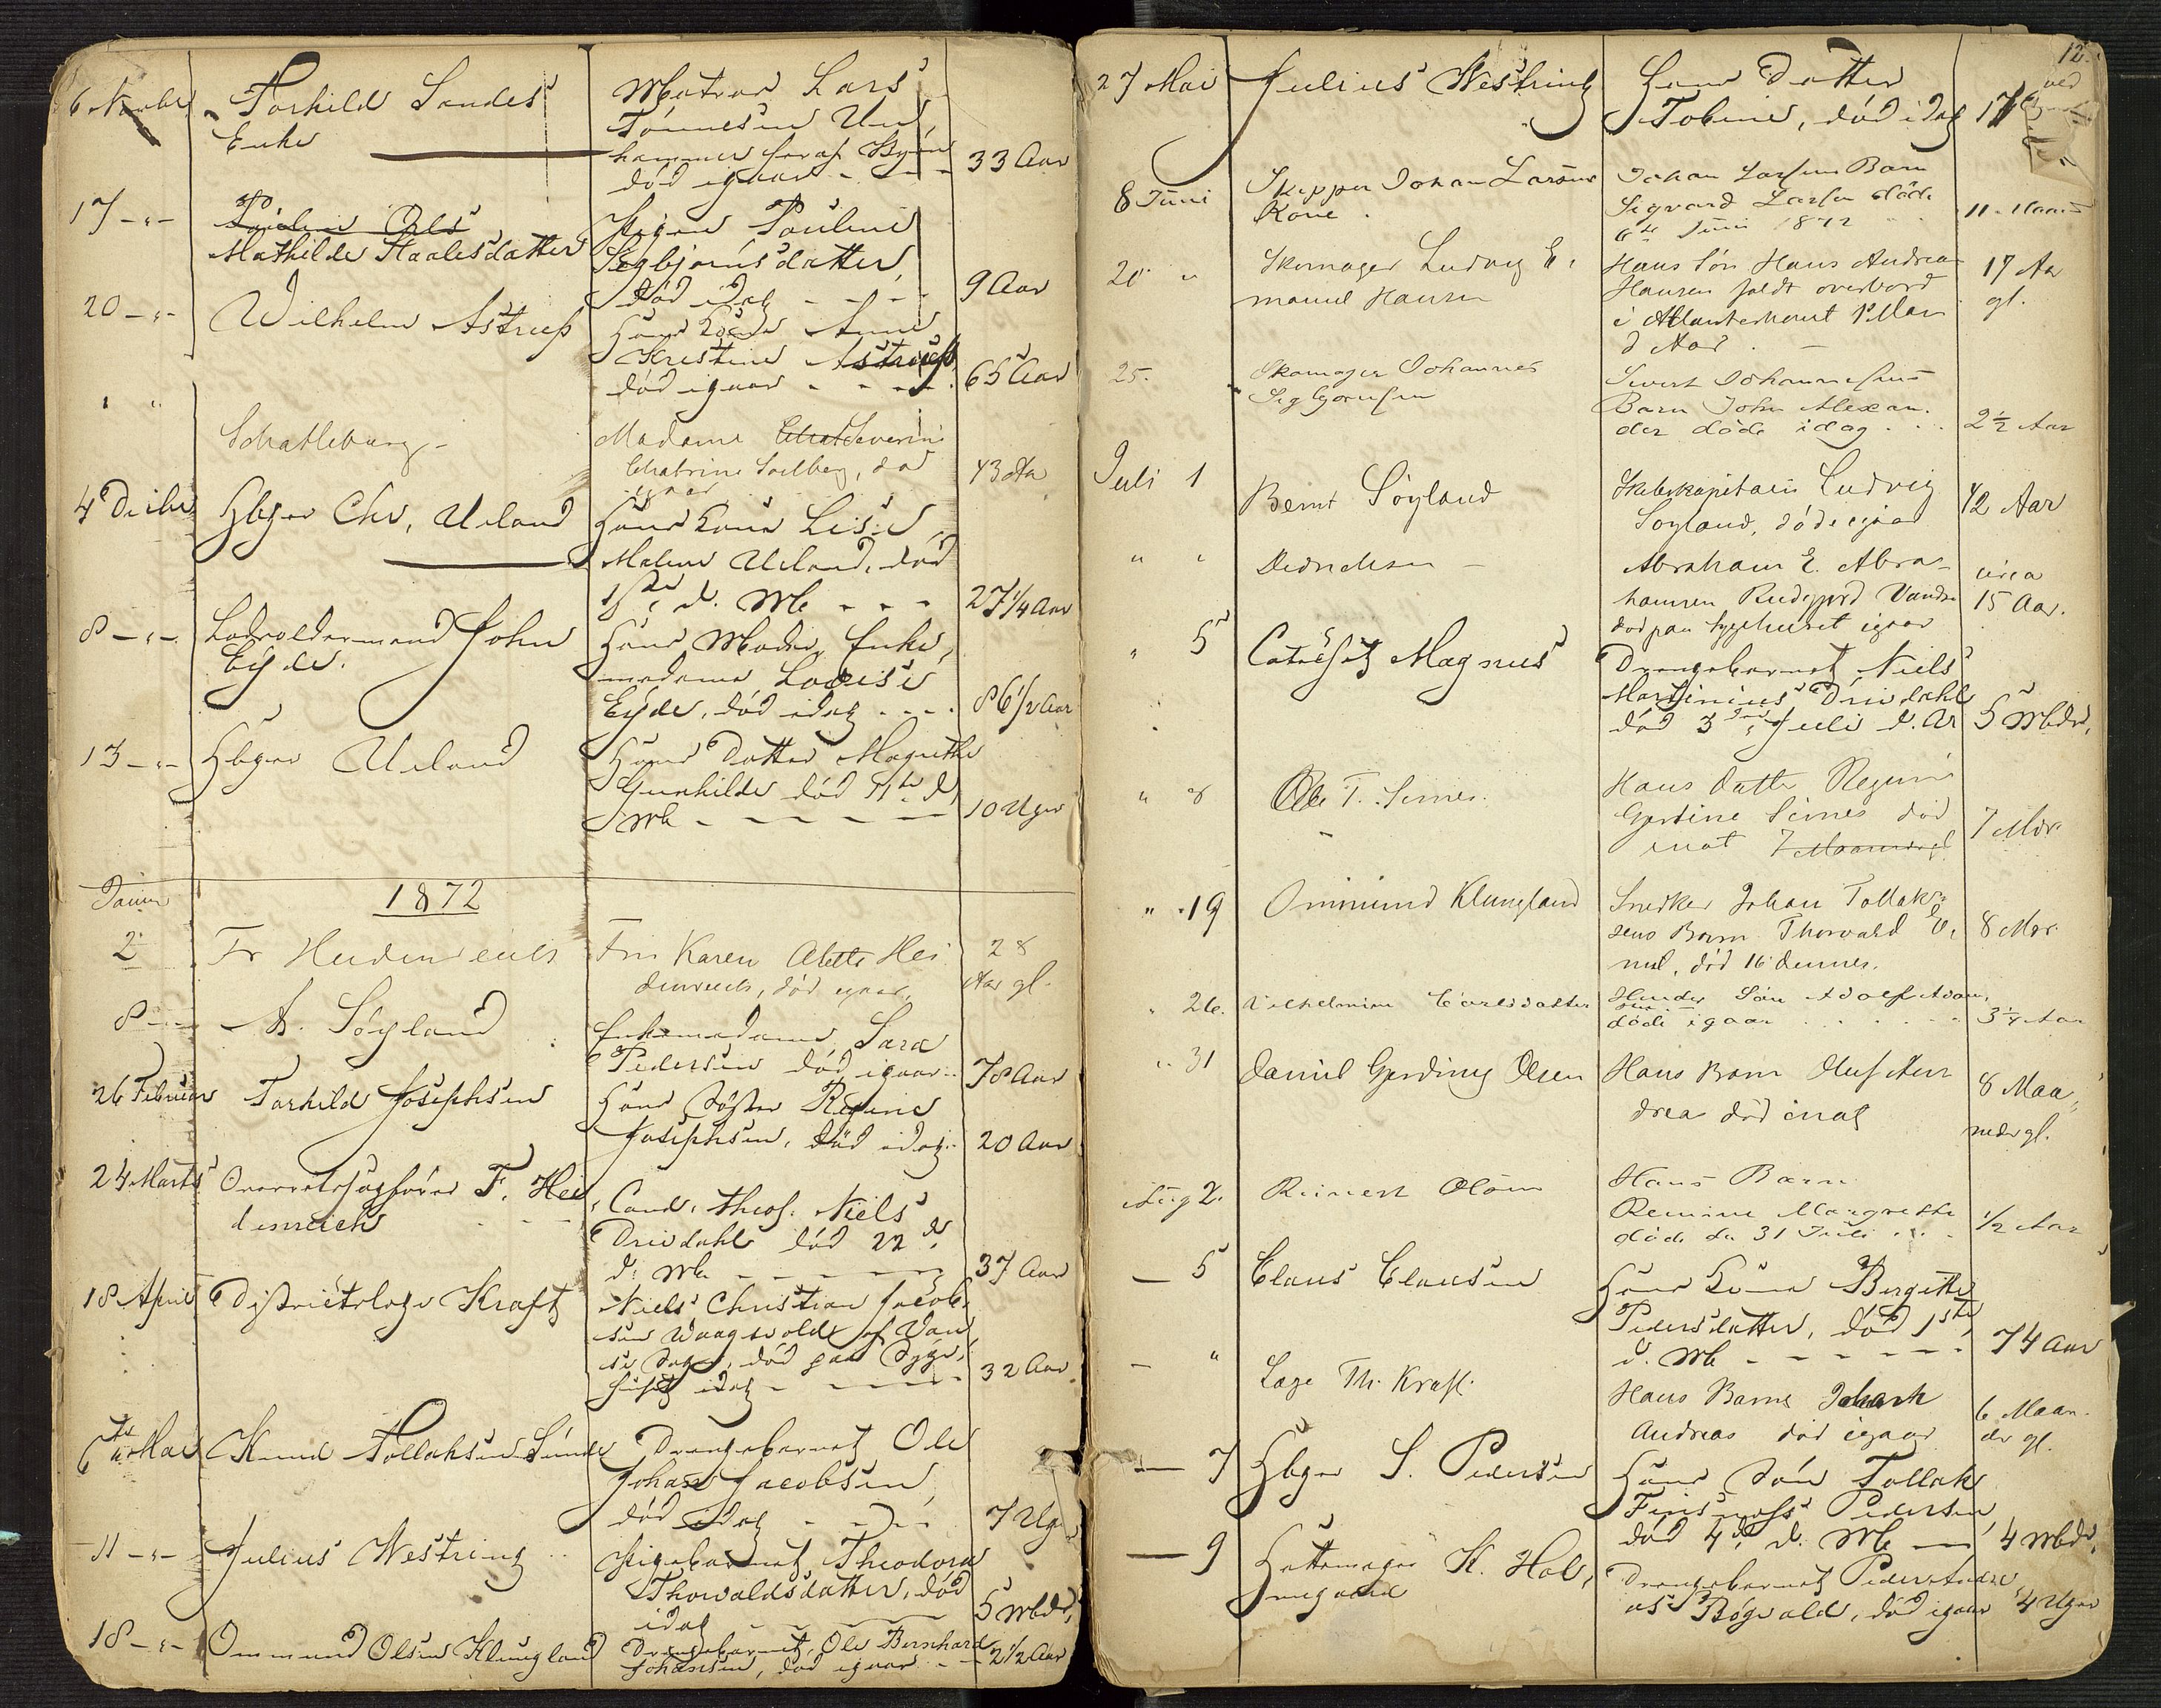 6 Novbr Torkild Sandes Matros Lars
Enke Tönnesen Un
hammer heraf Byen
død igaar - - - 33 Aar
17 -"- Pauline Ols
Mathilde Staalesdatter Pigen Pauline
Sigbjørnsdatter,
død idag - - - 9 Aar
20 -"- Wilhelm Astrup Hans Kone Anne
Kristine Astrup
død igaar - - - 65 Aar
" " Schatleburg - Madame Severine
Chatrine Soelberg, død 43 Aar
igaar
4 Decbr Hbgr Chr. Ueland Hans Kone Lise
Malene Ueland, død
1ste d. Md. - - - 27 1/4 Aar
8 -"- Lodsoldermand John Hans Moder, Enke,
Eyde. madame Lovise
Eyde, død idag - - - 86 1/2 Aar
13 -"- Hbgr Ueland Hans Datter Magrethe
Gunhilde død 11te d.
Md. - - - - - 10 Uger
Januar 1872
2 Fr Heidenreich Frü Karen Alette Hei 28
denreich, død igaar, Aar gl.
8 - - A. Söyland Enkemadame Sara
Pedersen død igaar.. 78 Aar
26 Februar Torkild Josephsen Hans Søster Regine
Josephsen, død idag.. 20 Aar
24 Marts Overretssagfører F. Hei
denreich Cand. theol. Niels
Drivdahl død 22d
d. Md. - - - 37 Aar
18 April Distriktslæge Kraft Niels Christian Jacob-
sen Waagsvolds af Van
se Sogn, død paa Syge-
huset idag - - - 32 Aar
6 Mai Knud Tollaksen Sunde Drengebarnet Ole
Johan Jacobsen,
død idag - - - 7 Uger
11 -"- Julius Westring Pigebarnet Theodora
Thorvaldsdatter, død
idag 5 Mdr.
18 -"- Ommund Olsen Klungland Drengebarnet, Ole Bernhard
Johansen, død igaar - - 2 1/2 Aar
12.
27 Mai Julius Westring Hans Datter
Tobine, død idag 17
8 Juni Skipper Johan Larsens Johan Larsens Barn
Kone. Sigvard Larsen døde
6te Juni 1872 11 Maan
20 " Skomager Ludvig E. Hans Søn Hans Andreas 17 Aar
manuel Hansen Hansen faldt overbord gl.
i Atlanterhavet 1 Mar
d Aar. -
25. Skomager Johannes Sivert Johannesens
Sigbjørnsen Barn John Alexan-
der døde idag . . . 2 1/2 Aar
Juli 1 Bernt Söyland Skibskapitain Ludvig 42 Aar
Soyland, døde igaar
" " Didriksen - Abraham E. Abra- circa
hamsen Rudgjord Vandse 15 Aar.
død paa Sygehuset igaar
" 5 Magnus Drengebarnet Niels
Martinius Drivdahl
død 3die Juli d. Ar 5 Mdr.
" 8 Ole T. Sirnes. Hans Datter Regine
Gjertine Sirnes død
inat 7 Maaneder 7 Mdr.
" 19 Ommund Klungland Snedker Johan Tollak-
sens Barn Thorvald E- 8 Mdr.
mil, død 16 dennes.
" 26. Vilhelmine Carlsdatter Hendes Søn Adolf Adam
døde igaar . . . 3 1/4 Aar
" 31 Daniel Gjerding Olsen Hans Barn Oluf An
drea død inat 8 Maa-
neder gl.
Aug 2. Reinert Olsen Hans Barn
Remine Margrethe
døde da 31 Juli . . . 1/2 Aar
- 5 Claus Clausen Hans Kone Birgitte
Pedersdatter, død 1ste
d. Md - - - 74 Aar
- " Læge Th. Kraft. Hans Barn Johan
Andreas død igaar 6 Maan-
der gl.
- 7 Hbgr S. Pedersen Hans Søn Tollak
Pedersen
død 4de d. Md - 4 Mdr.
- 9 Hattemager K. Hol-
megaard Drengebarnet Peder Andre
as Bøgvald, død igaar 4 Uger